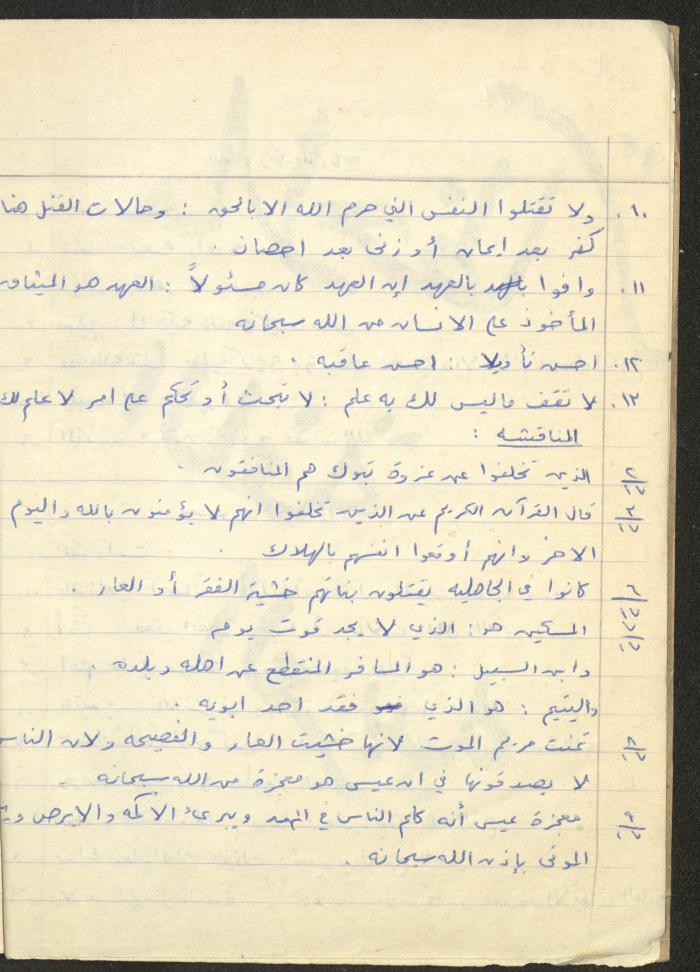 ١٠. ولا تقتلوا النفس التي حرم الله الا بالحق : وحالات القتل هنا
كفر بعد إيمان أو زنى بعد احصان .
١١. وافوا بالعهد إن العهد كان مسئولاً : العهد هو الميثاق
المأخوذ على الانسان من الله سبحانه
١٢. احسن تأويلا : احسن عاقبه .
١٣. لا تقف ماليس لك به علم : لا تبحث أو تحكم على امر لا علم لك
المناقشه :
٢ الذين تخلفوا عن غزوة تبوك هم المنافقون .
٣ قال القرآن الكريم عن الذين تخلفوا انهم لا يؤمنون بالله واليوم
الاخر وانهم أوقعوا انفسهم بالهلاك
٦ كانوا في الجاهليه يقتلون بناتهم خشية الفقر أو العار .
٧ المسكين هو: الذي لا يجد قوت يومه
وابن السبيل : هو المسافر المنقطع عن اهله وبلده .
واليتيم : هو الذي فقد احد ابويه .
٨ تمنت مريم الموت لانها خشيت العار والفضيحه ولان الناس
لا يصدقونها في ان عيسى هو معجزة من الله سبحانه
٩ معجزة عيسى أنه كلم الناس في المهد ويبرىء الاكمه والابرص
الموتى بإذن الله سبحانه .